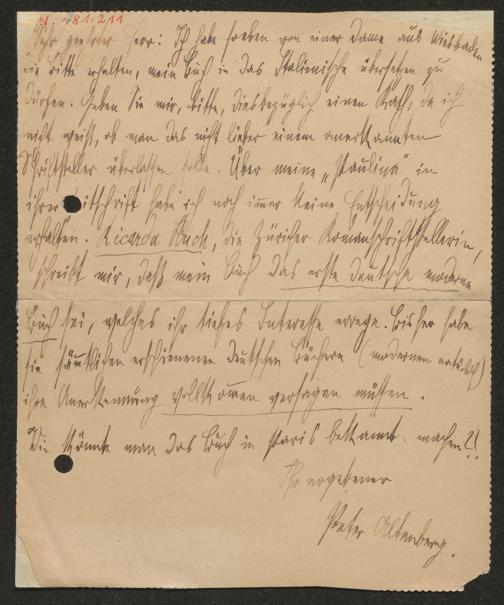 N. 81.211
Sehr geehrter Herr: Ich habe soeben von einer Dame aus Wiesbaden
die Bitte erhalten, mein Buch in das Italienische übersetzen zu
dürfen. Geben Sie mir, bitte, diesbezüglich einen Rath, da ich
nicht weiß, ob man das nicht lieber einem anerkannten
Schriftsteller überlassen solle. Über meine „Paulina“ in
ihrer Zeitschrift habe ich noch immer keine Entscheidung
erhalten. Ricarda Huch, die Züricher Romanschriftstellerin,
schreibt mir, daß mein Buch das erste deutsche moderne
Buch sei, welches ihr tiefes Interesse errege. Bisher habe
sie sämtlichen erschienenen deutschen Büchern (modernen
ihre Anerkennung vollkommen versagen müssen.
Wie könnte man das Buch in Paris bekannt machen?!
Ihr ergebener
Peter Altenberg.